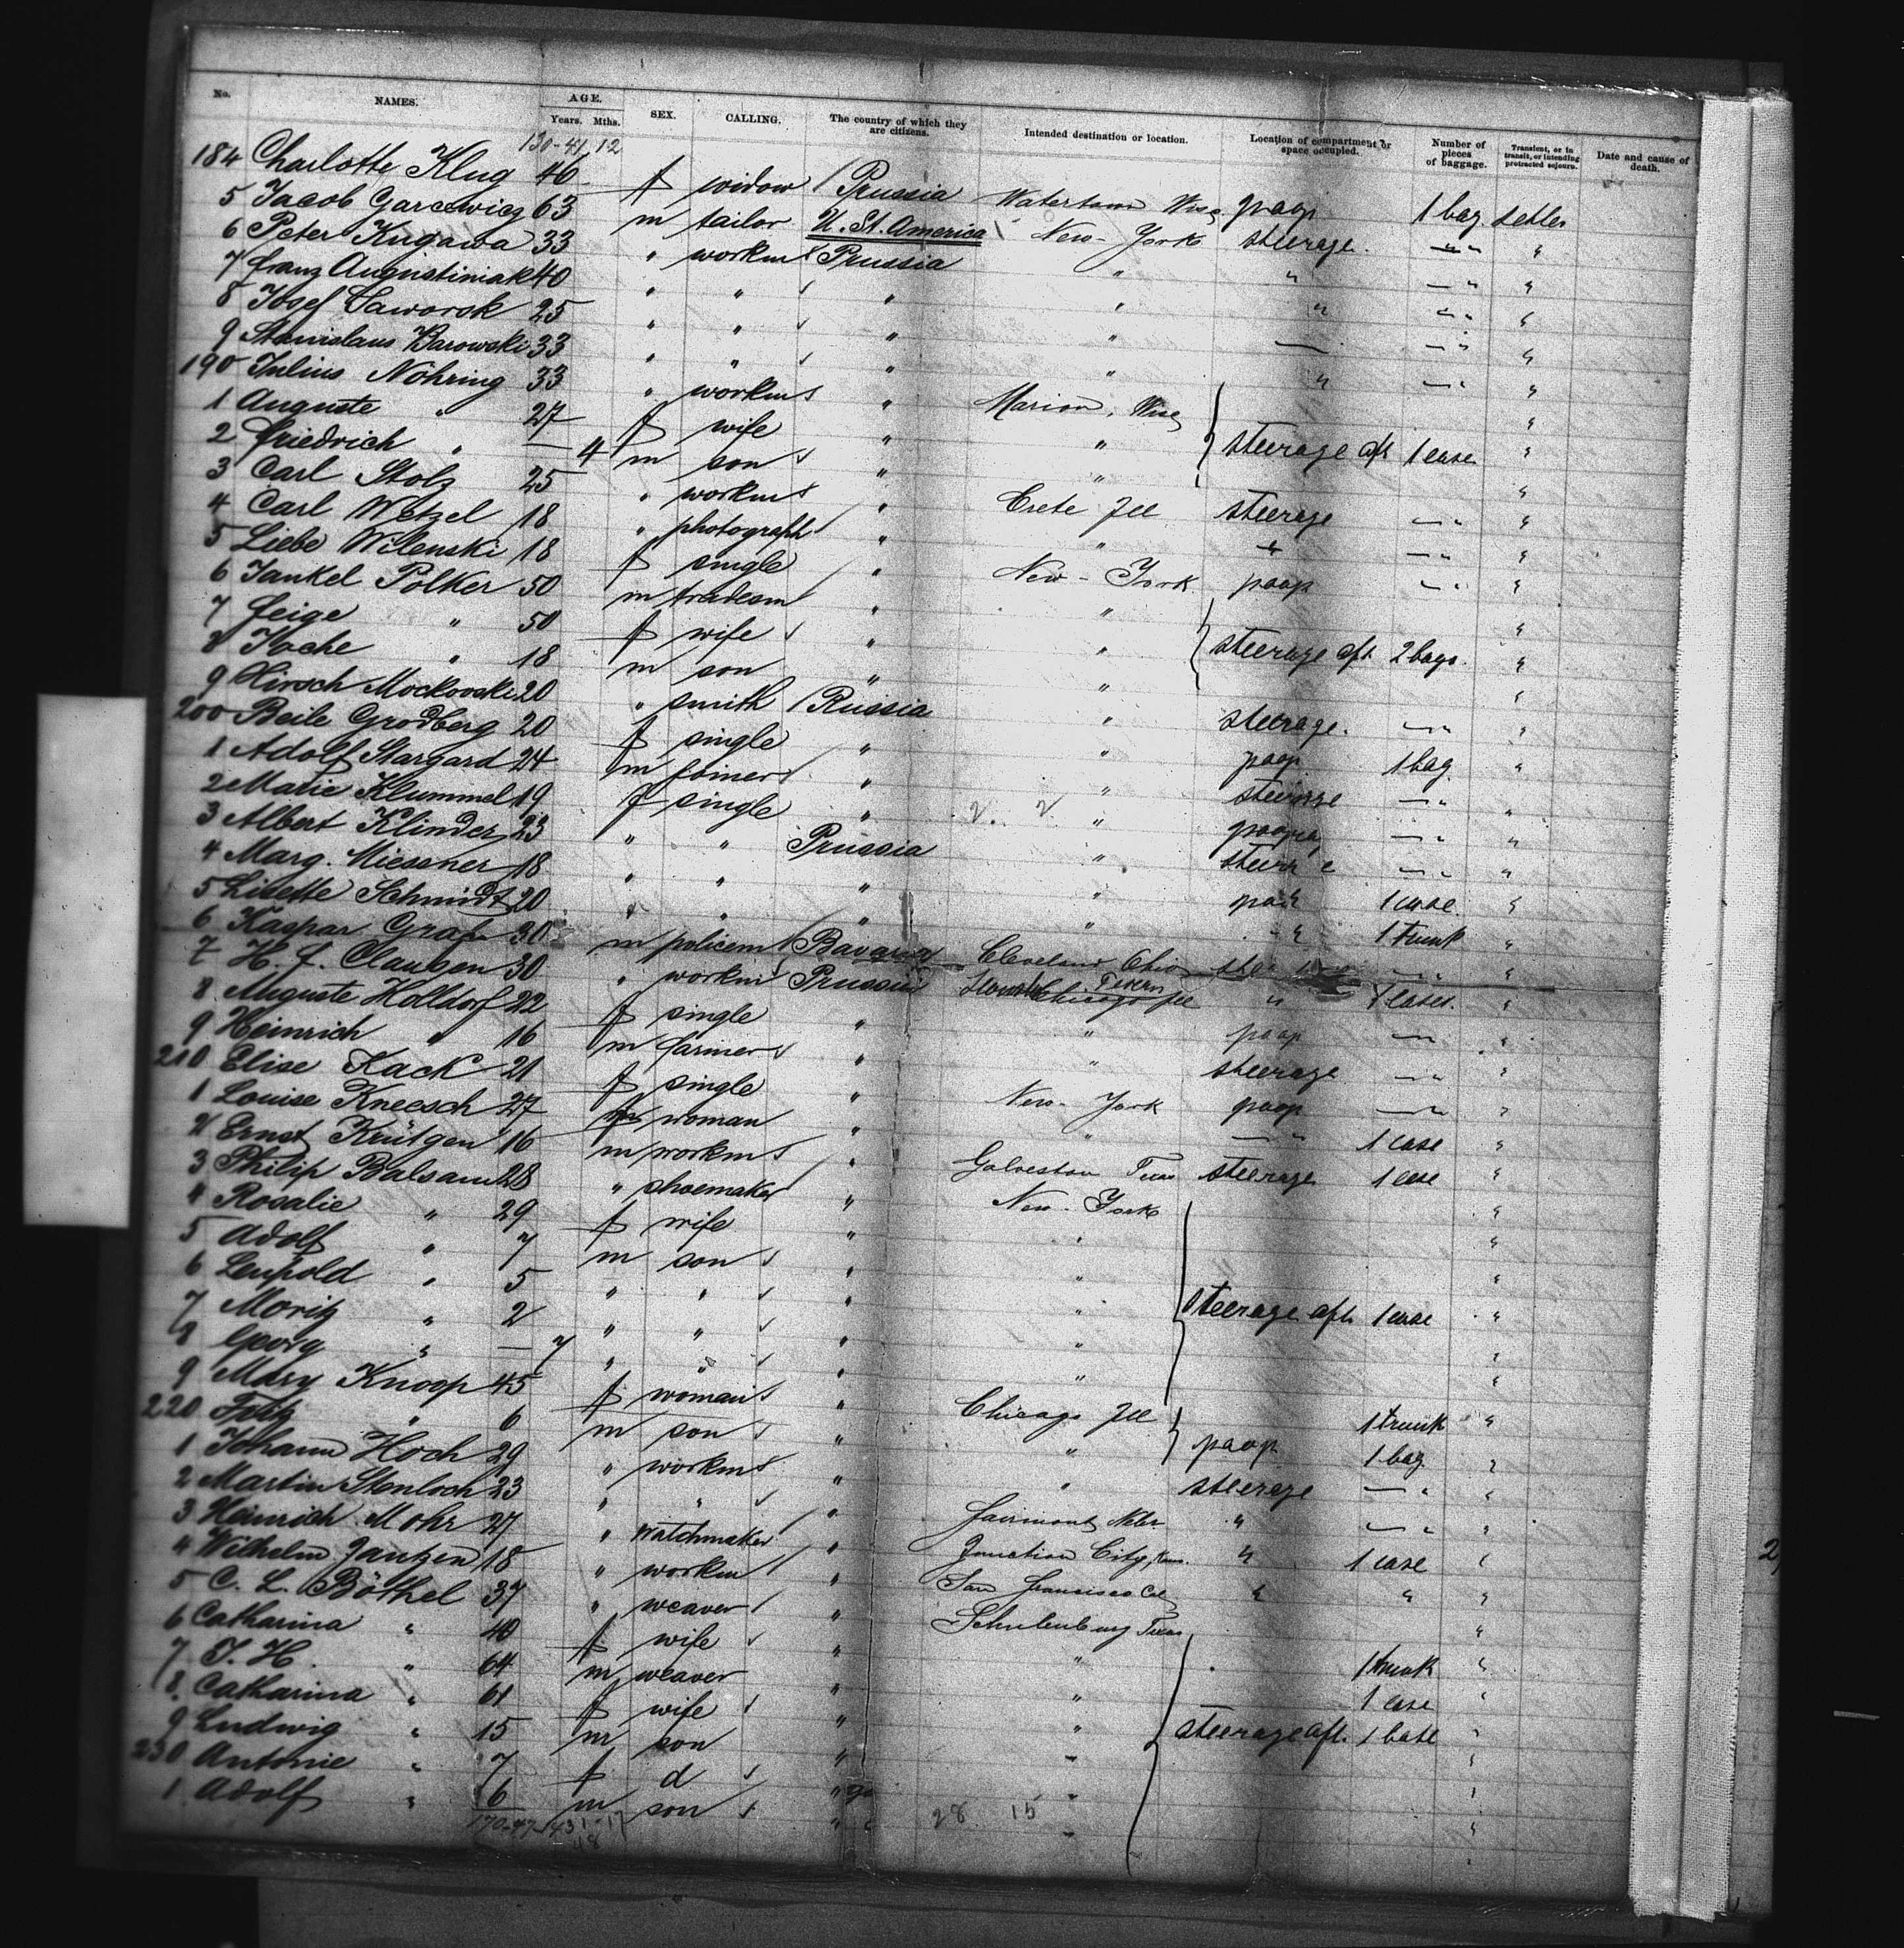 No. NAMES. AGE. Years. Mths. SEX. CALLING. The country of which they are citizens. Intended destination or location. Location of compartment or space occupied. Number of pieces of baggage. Transient, or in transit, or intending protracted sojourn. Date and cause of death.
130-41.12
184 Charlotte Klug 46 f widow Prussia Watertown Wisc poop 1 bag settler
5 Jacob Garcewicz 63 m tailor U. St. America New-York steerage. — " "
6 Peter Kugawa 33 " workm Prussia " " — " "
7 Franz Augustiniak 40 " " " " " — " "
8 Josef Saworsk 25 " " " " — — " "
9 Stanislaus Barowski 33 " " " " " — " "
190 Julius Nöhring 33 " workm " Marion, Wisc "
1 Auguste " 27 f wife " " steerage aft 1 case "
2 Friedrich " — 4 m son " " "
3 Carl Stolz 25 " workm " Crete Ill steerage — " "
4 Carl Wetzel 18 " photograph " " " — " "
5 Liebe Wilenski 18 f single " New-York poop — " "
6 Jankel Polker 50 m tradesm " " "
7 Feige " 50 f wife " " steerage aft 2 bags. "
8 Joche " 18 m son " " "
9 Hirsch Mockovski 20 " smith Russia " steerage. — " "
200 Beile Grodberg 20 f single " " poop 1 bag "
1 Adolf Stargard 24 m joiner " " steerage — " "
2 Marie Klummel 19 f single " " — " "
3 Albert Klinder 23 " " Prussia " — " "
4 Marg. Miessner 18 " " " " 1 case. "
5 Lisette Schmidt 20 " " " " " 1 trunk "
6 Kaspar Graf 30 m policem Bavaria Cleveland Ohio — " "
7 H. F. Clausen 30 " workm Prussia Texas " cases. "
8 Auguste Holldorf 22 f single " Chicago Ill poop — "
9 Heinrich " 16 m farmer " " steerage — " "
210 Elise Kack 21 f single " " poop — " "
1 Louise Kneesch 27 f woman " New-York — " 1 case "
2 Ernst Krütgen 16 m workm " " steerage 1 case "
3 Philip Balsam 28 " shoemaker " Galveston Texas "
4 Rosalie " 29 f wife " New-York "
5 Adolf " 7 m son " " "
6 Leupold " 5 " " " " steerage aft. 1 case "
7 Moritz " 2 " " " " "
8 Georg " — 7 " " " " "
9 Mary Knoop 45 f woman " " 1 trunk "
220 Fritz " 6 m son " Chicago Ill poop 1 bag. "
1 Johann Hoch 29 " workm " " steerage — " "
2 Martin Stenloch 23 " " " " " — " "
3 Heinrich Mohr 27 " watchmaker " Fairmont, Nebr. " 1 case "
4 Wilhelm Jantzen 18 " workm " Junction City, Kans. " " "
5 C. L. Böthel 37 " weaver " San Francisco Cal "
6 Catharina " 40 f wife " Schulenburg Texas 1 trunk "
7 J. H. " 64 m weaver " " 1 case "
8 Catharina " 61 f wife " " steerage aft. 1 case "
9 Ludwig " 15 m son " " "
230 Antonie " 7 f d " " "
1 Adolf " 6 m son " " "
28 15